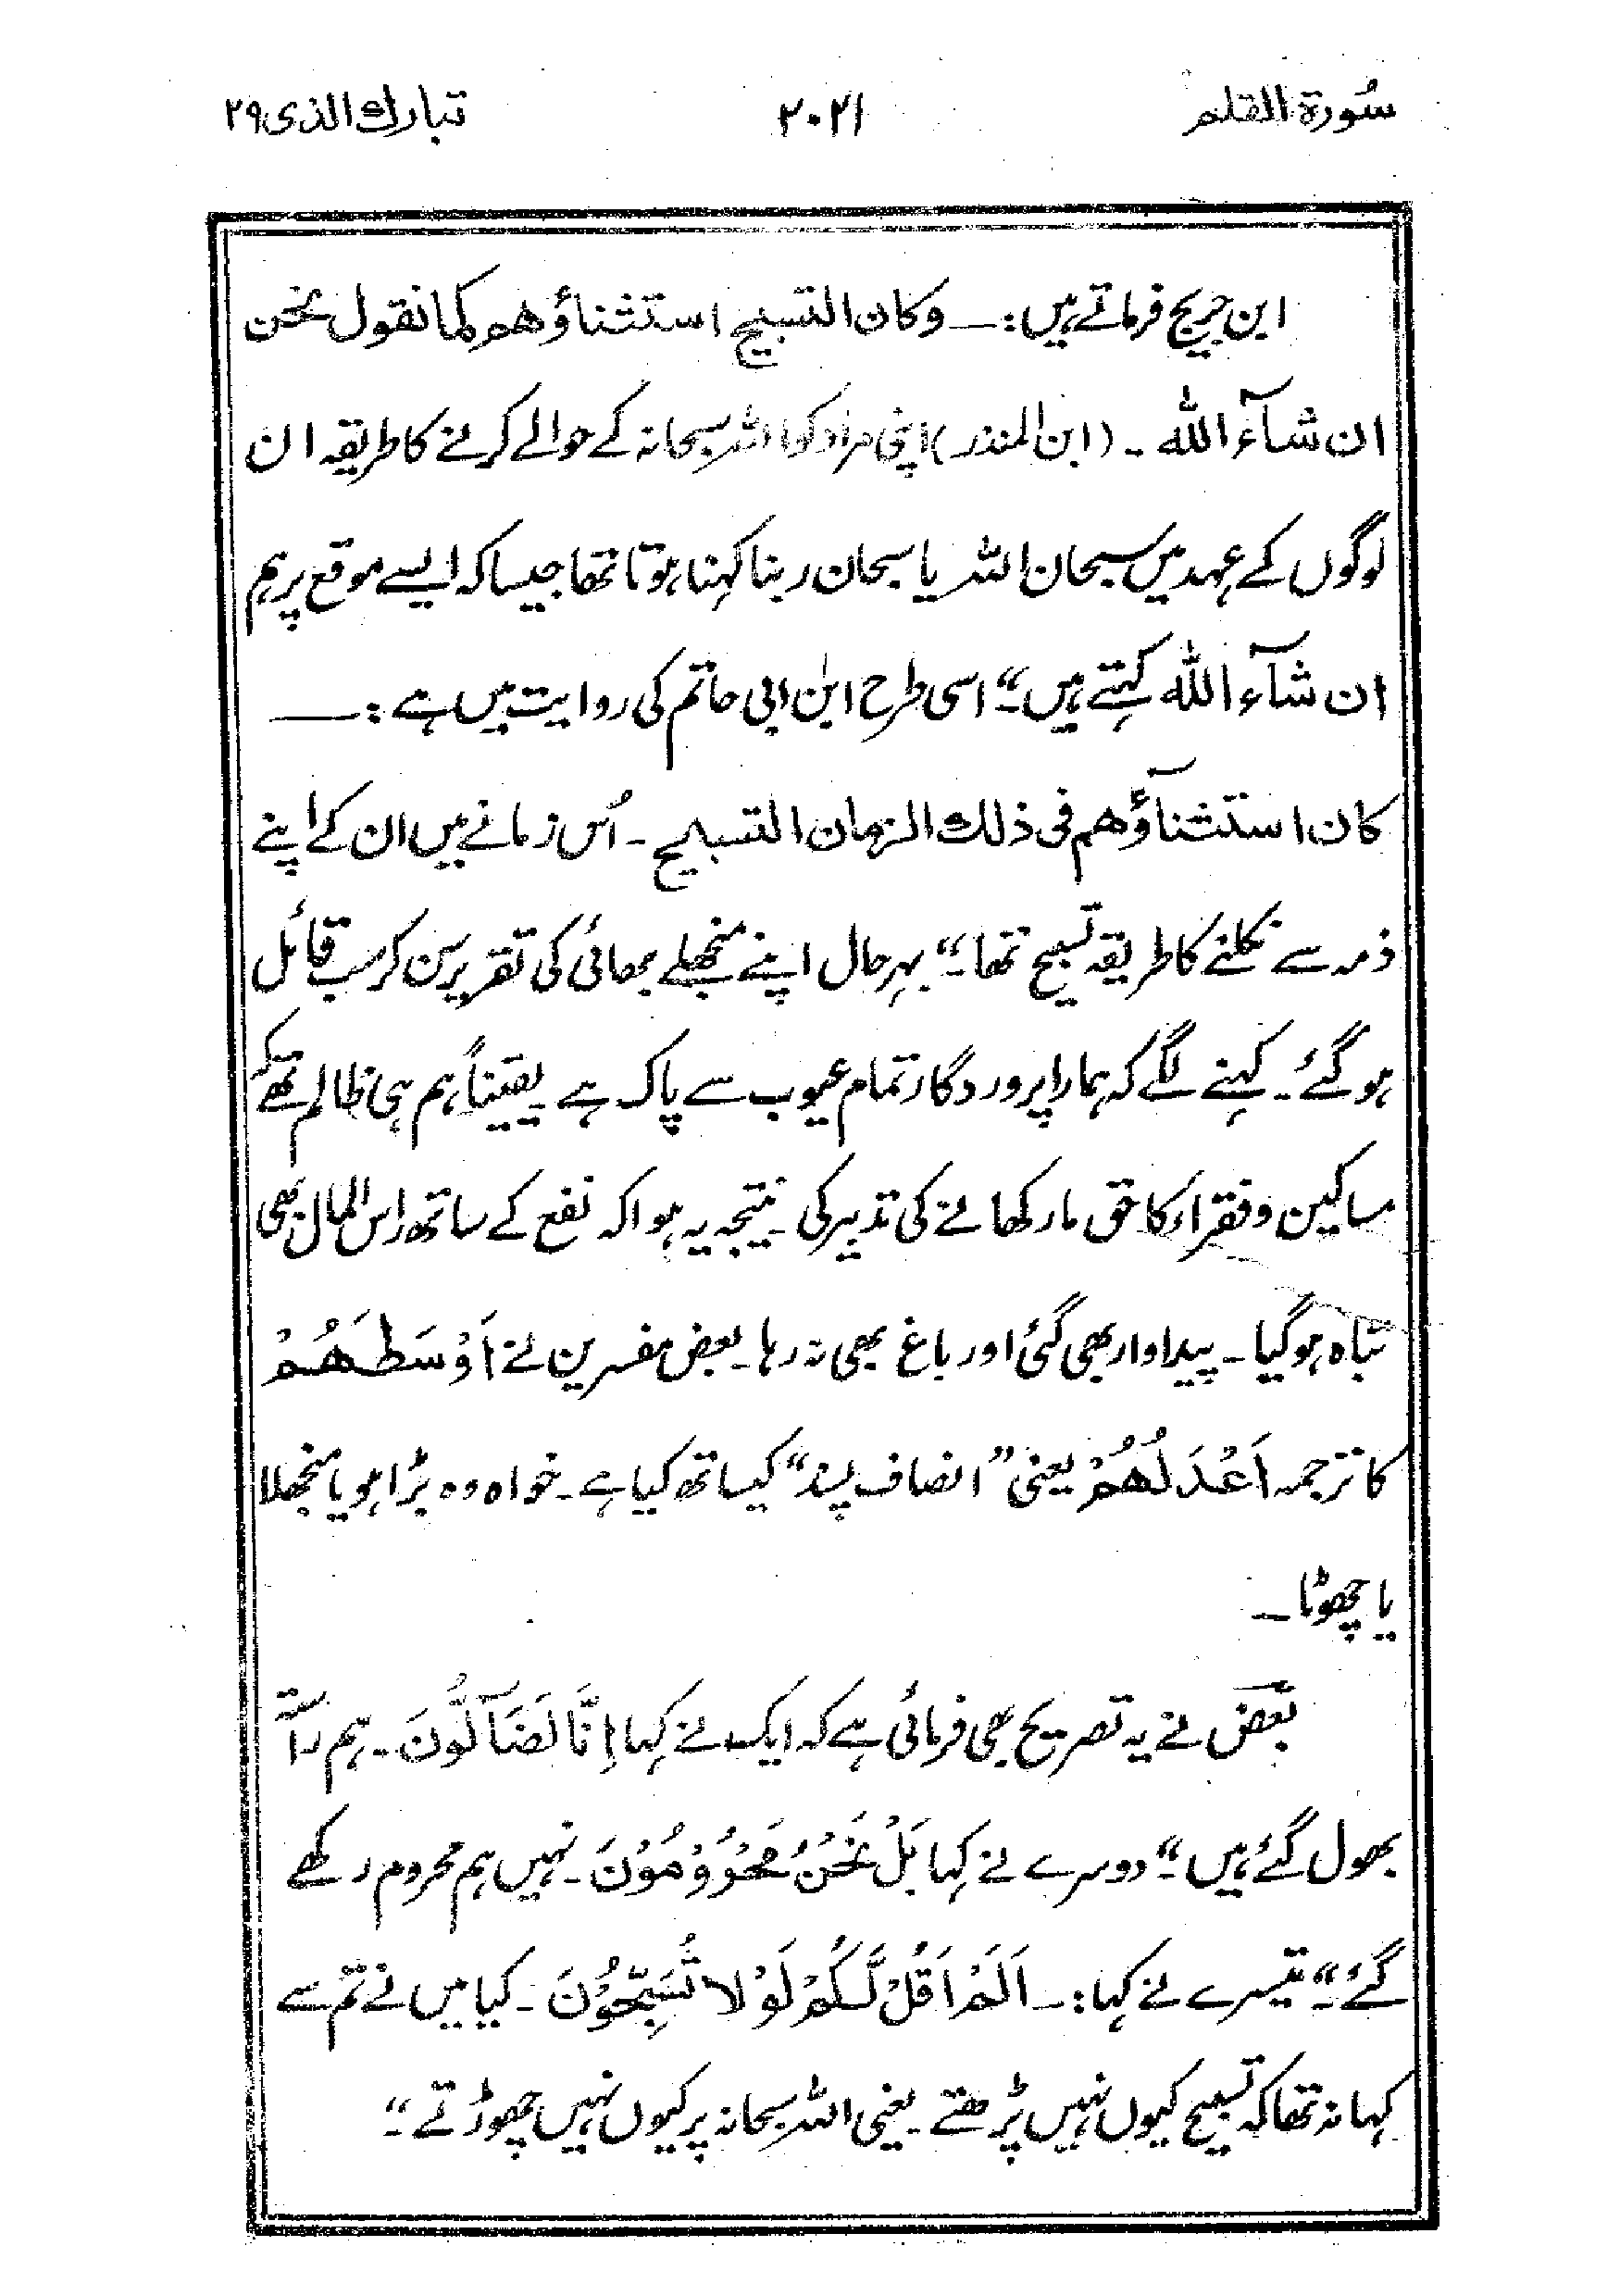 سُورة القلم ۲۰۲۱ تبارك الذی ۲۹
ابن جریج فرماتے ہیں:۔ وكان التسبیح استثناؤهم كما نقول نحن
ان شآء الله ۔ (ابن المنذر) اپنی مراد کو اللہ سبحانہ کے حوالے کرنے کا طریقہ ان
لوگوں کے عہد میں سبحان اللہ یا سبحان ربنا کہنا ہوتا تھا جیسا کہ ایسے موقع پر ہم
ان شآء الله کہتے ہیں“۔ اسی طرح ابن ابی حاتم کی روایت میں ہے:۔
كان استثنآؤهم فی ذلك الزمان التسبیح ۔ اُس زمانے میں ان کے اپنے
ذمہ سے نکلنے کا طریقہ تسبیح تھا“۔ بہرحال اپنے منجھلے بھائی کی تقریر سن کر سب قائل
ہو گئے۔ کہنے لگے کہ ہمارا پروردگار تمام عیوب سے پاک ہے یقیناً ہم ہی ظالم تھے کہ
مساکین و فقراء کا حق مار کھانے کی تدبیر کی۔ نتیجہ یہ ہوا کہ نفع کے ساتھ راس المال بھی
تباہ ہو گیا۔ پیداوار بھی گئی اور باغ بھی نہ رہا۔ بعض مفسرین نے اَوْسَطَهُمْ
کا ترجمہ اَعْدَلُهُمْ یعنی ”انصاف پسند“ کیساتھ کیا ہے۔ خواہ وہ بڑا ہو یا منجھلا
یا چھوٹا۔
بعض نے یہ تصریح بھی فرمائی ہے کہ ایک نے کہا اِنَّا لَضَآلُّوْنَ۔ ہم راستہ
بھول گئے ہیں“۔ دوسرے نے کہا بَلْ نَحْنُ مَحْرُوْمُوْنَ۔ نہیں ہم محروم رکھے
گئے“۔ تیسرے نے کہا:۔ اَلَمْ اَقُلْ لَّكُمْ لَوْلَا تُسَبِّحُوْنَ ۔ کیا میں نے تم سے
کہا نہ تھا کہ تسبیح کیوں نہیں پڑھتے۔ یعنی اللہ سبحانہ پر کیوں نہیں چھوڑتے“۔